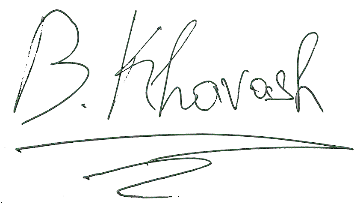 B. Khavash